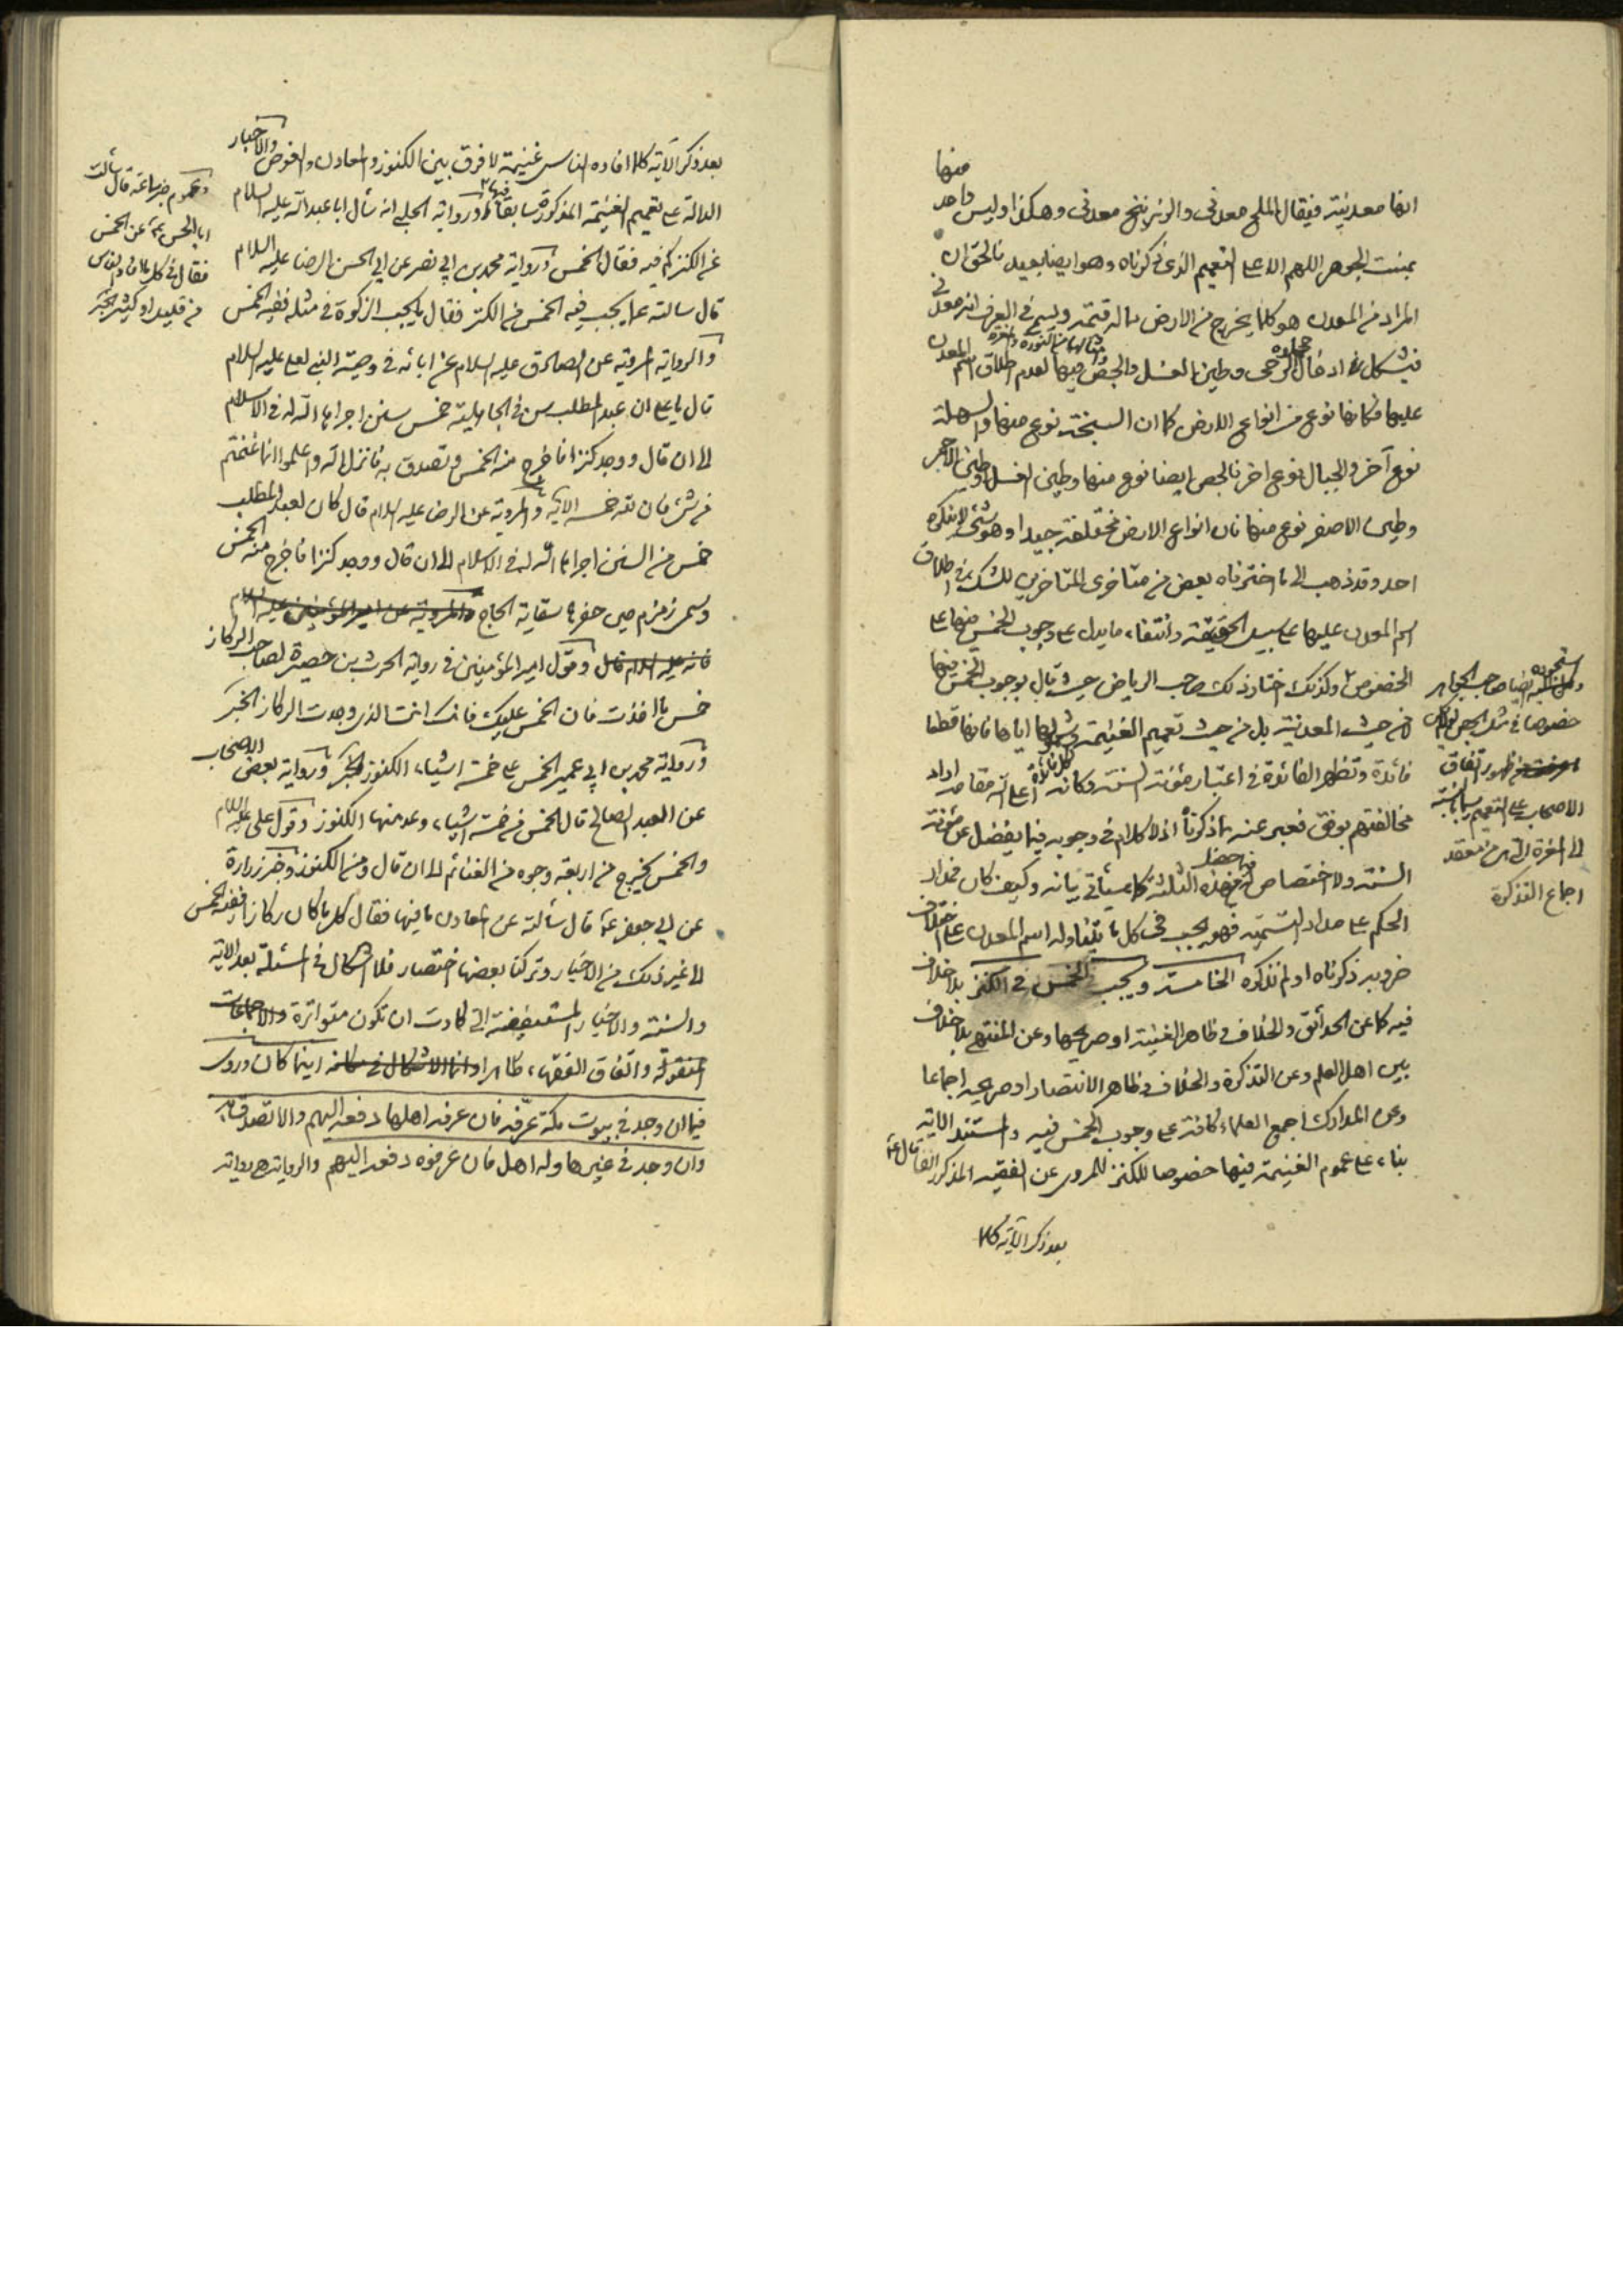 انها معدنية فيقال الملح معدني والزرنيخ معدني وهكذا وليس واحد منها
بمنبت الجوهر اللهم الا على التعميم الذي ذكرناه وهو ايضا بعيد فالحق ان
المراد من المعدن هو كلما يخرج من الارض مما له قيمة ويسمى في العرف انه معدني
فيشكل ادخال حجارة الرحى وطين الغسل والجص والنورة فيها لعدم اطلاق اسم المعدن
عليها فكانها نوع من انواع الارض كما ان السبخة نوع منها والسهلة
نوع آخر والجبال نوع اخر فالجص ايضا نوع منها وطين الغسل وطين الاحمر
وطين الاصفر نوع منها فان انواع الارض مختلفة جيدا وهو شئ لا ينكره
احد وقد ذهب الى ما اخترناه بعض من متاخري المتاخرين للشك في اطلاق
اسم المعدن عليها على سبيل الحقيقة وانتفاء ما يدل على وجوب الخمس فيها على
الخصوص وكذلك اختار ذلك صاحب الرياض حيث قال بوجوب الخمس فيها
لا من حيث المعدنية بل من حيث تعميم الغنيمة لشمولها اياها فانها قطعا
فائدة وتظهر الفائدة في اعتبار مؤنة السنة وكانه اعلى الله مقامه اراد
مخالفتهم بوفق فعبر عنه بما ذكرناه اذ لا كلام في وجوبه فيما يفضل عن مؤنة
السنة ولا اختصاص له بهذه الثلثة كما سيأتي بيانه وكيف كان فمدار
الحكم على صدق التسمية فهو يجب في كل ما يتناوله اسم المعدن على اختلاف
ضروبه ذكرناه او لم نذكره الخامسة ويجب الخمس في الكنز بلا خلاف
فيه كما عن الحدائق والخلاف في ظاهر الغنية او صريحها وعن المنتهى بلا خلاف
بين اهل العلم وعن التذكرة والخلاف وظاهر الانتصار او صريحه اجماعا
وعن المدارك اجمع العلماء كافة على وجوب الخمس فيه والمستند الاية
بناء على عموم الغنيمة فيها خصوصا للكنز للمروي عن الفقيه المذكور انفا قال
بعد ذكر الآية كلما
صاحب الجواهر
خصوصا في مثل الجص
ظهور اتفاق
الاصحاب على التعميم بالنسبة
الى المغرة الى من معقد
اجماع التذكرة
بعد ذكر الآية كلما افاده الناس غنيمة لا فرق بين الكنوز والمعادن والغوص والاخبار
الدالة على تعميم الغنيمة المذكورة سابقا ورواية الحلبي انه سأل ابا عبد الله عليه السلام
عن الكنز كم فيه فقال الخمس ورواية محمد بن ابي نصر عن ابي الحسن الرضا عليه السلام
قال سالته عما يجب فيه الخمس من الكنز فقال ما يجب الزكوة في مثله ففيه الخمس
والرواية المروية عن الصادق عليه السلام عن ابائه في وصية النبي لعلي عليه السلام
قال يا علي ان عبد المطلب سن في الجاهلية خمس سنن اجراها الله له في الاسلام
الى ان قال ووجد كنزا فاخرج منه الخمس وتصدق به فانزل الله واعلموا انما غنمتم
من شئ فان لله خمسه الاية والمروية عن الرضا عليه السلام قال كان لعبد المطلب
خمس من السنن اجراها الله له في الاسلام الى ان قال ووجد كنزا فاخرج منه الخمس
وسمى زمزم حين حفرها سقاية الحاج والمروية عن امير المؤمنين عليه السلام
فانه عليه السلام قال وقول امير المؤمنين في رواية الحرث بن حصيرة لصاحب الركاز
خمس ما اخذت فان الخمس عليك فانك انت الذي وجدت الركاز الخبر
ورواية محمد بن ابي عمير الخمس على خمسة اشياء الكنوز الخبر ورواية بعض الاصحاب
عن العبد الصالح قال الخمس من خمسة اشياء وعد منها الكنوز وقول علي عليه السلام
والخمس يخرج من اربعة وجوه من الغنائم الى ان قال ومن الكنوز وخبر زرارة
عن ابي جعفر ع قال سألته عن المعادن ما فيها فقال كل ما كان ركازا ففيه الخمس
الى غير ذلك من الاخبار وتركنا بعضها اختصار فلا اشكال في المسئلة بعد الاية
والسنة والاخبار المستفيضة التي كادت ان تكون متواترة والاجماعات
المنقولة واتفاق الفقهاء ظاهرا وانما الاشكال في مكانه اينما كان وروى
فيما ان وجد في بيوت مكة عرفه فان عرفه اهلها دفعه اليهم والا تصدق به
وان وجد في غيرها وله اهل فان عرفوه دفعه اليهم والرواية رواية
وعموم خبر سماعة قال سألت
ابا الحسن ع عن الخمس
فقال في كل ما افاد الناس
من قليل او كثير الخبر